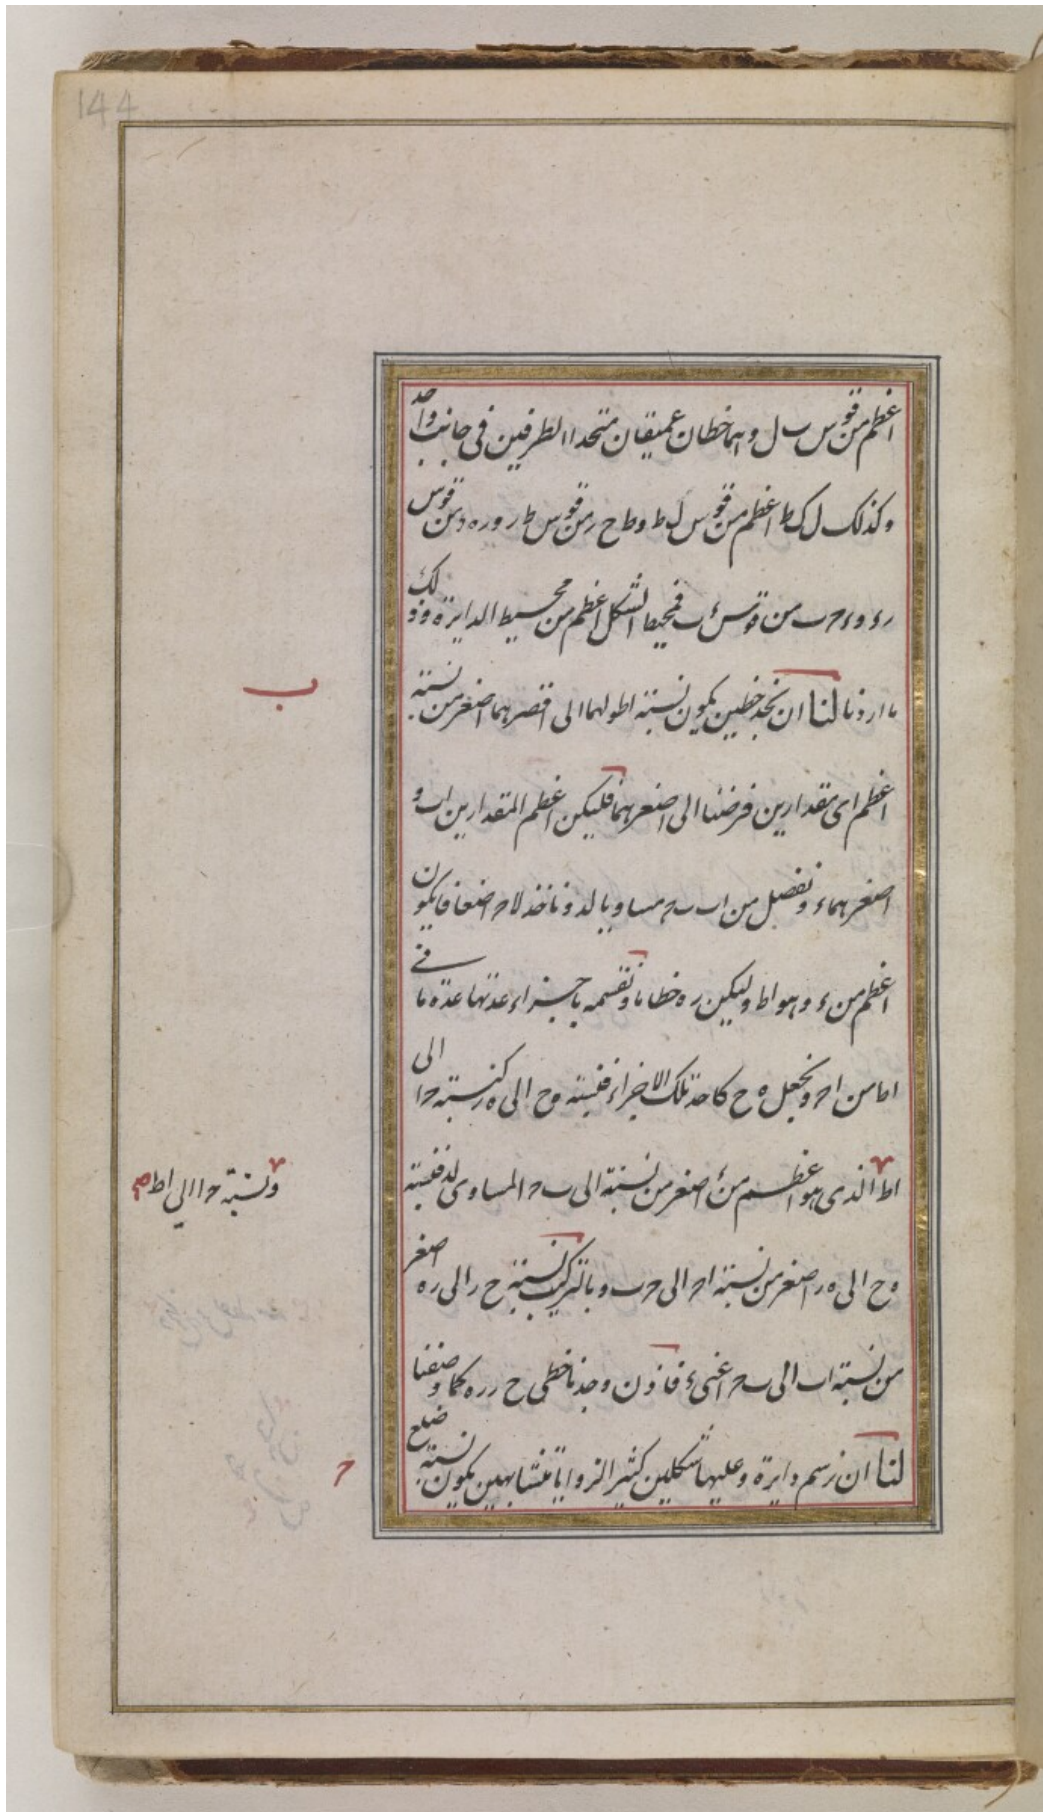 144
اعظم من قوس ب ل وهما خطان عميقان متحدا الطرفين فى جانب واحد
وكذلك ل ك ط اعظم من قوس ل ط وط ح ر من قوس ط ر و ر ه د من قوس
ر ء و ء ح ب من قوس ء ب فمحيط الشكل اعظم من محيط الدايرة وذلك
ما اردنا لنا ان نجد خطين يكون نسبة اطولهما الى اقصرهما اصغر من نسبة
ب
اعظم اى مقدارين فرضنا الى اصغرهما فليكن اعظم المقدارين اب و
اصغرهما ء ونفصل من اب ب ح مساويا لد وناخذ لا ح اضعافا يكون
اعظم من ء وهو اط وليكن ر ه خطا ما ونقسمه باجزاء عدتها عدة ما فى
اط من ا ح ونجعل ه ح كاحد تلك الاجزاء فنسبة ه ح الى ه ر كنسبة ح ا الى
اط الذى هو اعظم من ء اصغر من نسبة الى ب ح المساوى لد فنسبة
ونسبة ح ا الى اط صح
ه ح الى ه ر اصغر من نسبة ا ح الى ح ب وبالتركيب نسبة ح ر الى ر ه اصغر
من نسبة اب الى ب ح اعنى ء فاذن وجدنا خطى ح ر ر ه كما وصفنا
لنا ان نرسم دايرة وعليها شكلين كثير الزوايا متشابهين يكون نسبة ضلع
ح